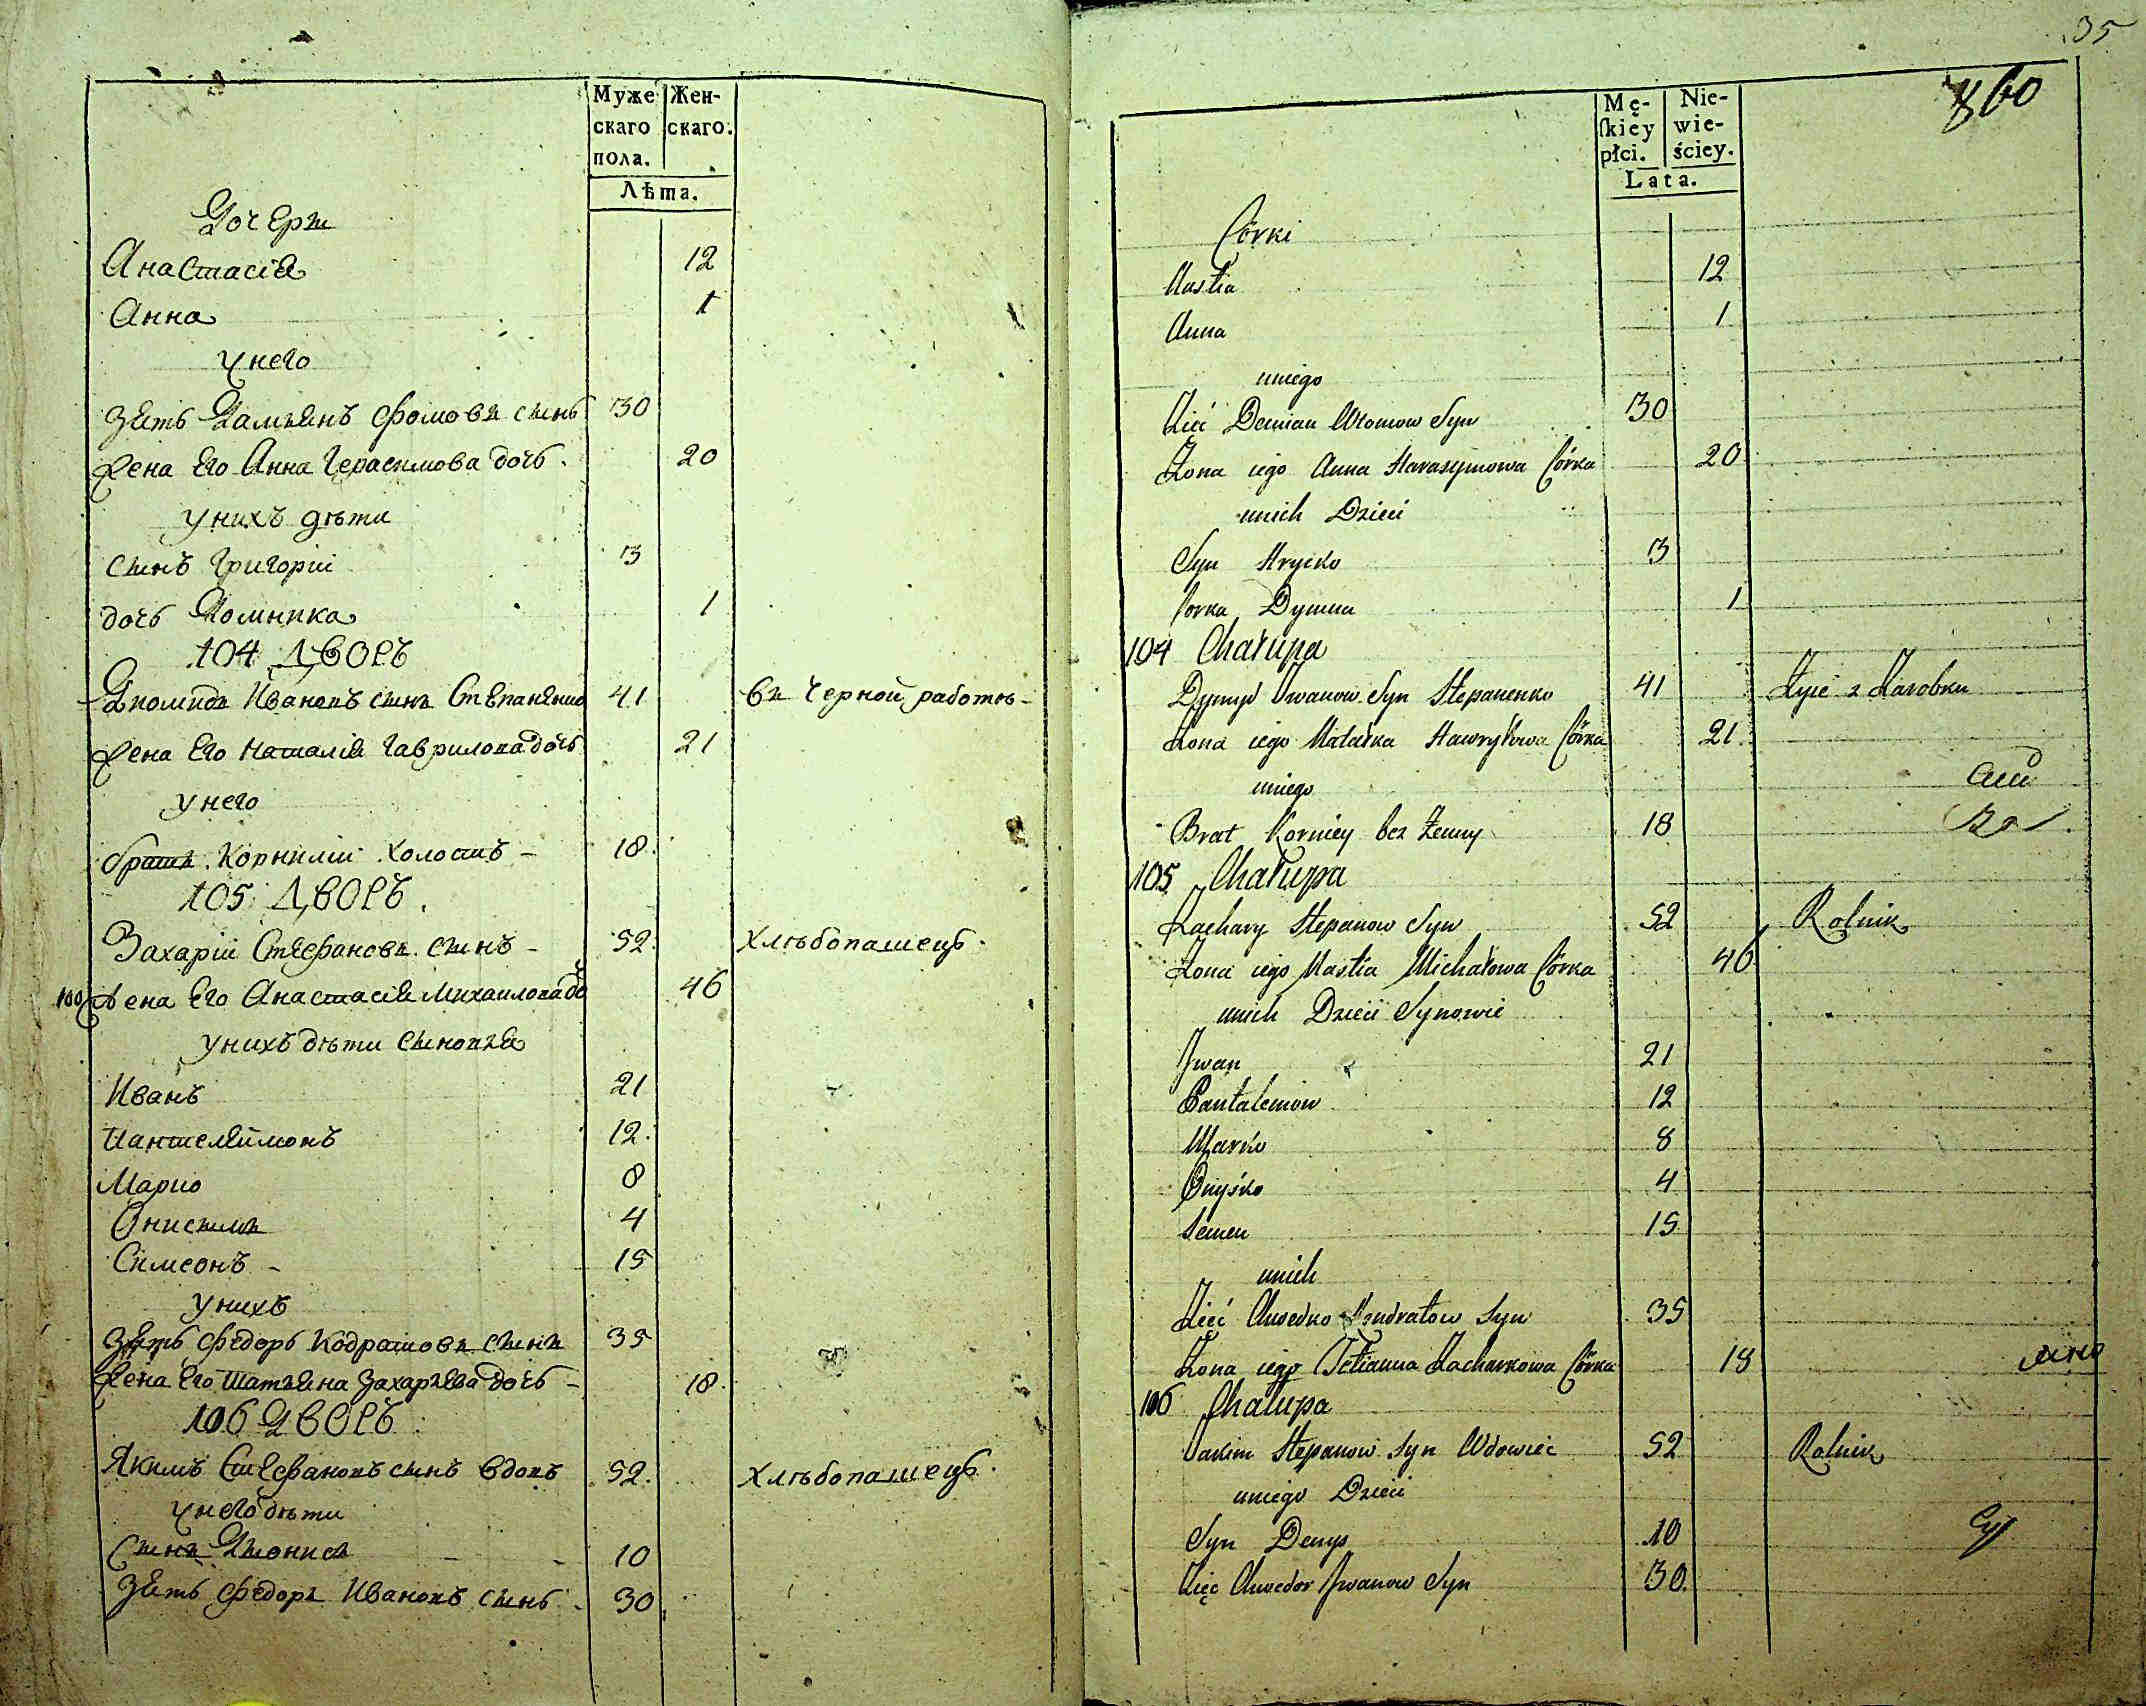 Муже
скаго
пола.
Жен-
скаго.
Лѣта.
Дочери
Анастасія 12
Анна 1
У него
Зять Дамьянъ Фомовъ сынъ 30
Жена Его Анна Герасимова дочь. 20
У нихъ дѣти
Сынъ Григорій 3
дочь Домникa 1
104 ДВОРЪ
Диомидъ Ивановъ сынъ Степаненко 41 въ черной работѣ -
Жена Его Наталія Гаврилова дочь 21
У него
братъ Корнилій холостъ - 18
105 ДВОРЪ.
Захарій Стефановъ сынъ - 52 Хлѣбопашецъ.
100 Жена Его Анастасія Михаилова до 46
У нихъ дѣти сыновья
Иванъ 21
Пантелеймонъ 12
Марко 8
Онисимъ 4
Симеонъ - 15
У нихъ
Зять Федоръ Кодратовъ сынъ 35
Жена Его Татьяна Захарьева дочь - 18
106 ДВОРЪ
Якимъ Стефановъ сынъ вдовъ 52. Хлѣбопашецъ.
У него дѣти
Сынъ Дионисъ 10
Зять Федоръ Ивановъ сынъ 30
35
860
Mę-
skiey
płci.
Nie-
wie-
ściey.
Lata.
Córki
Nastia 12
Anna 1
uniego
Zięć Demian Chomow Syn 30
Zona iego Anna Harasymowa Córka 20
unich Dzieci
Syn Hrycko 3
Corka Dymna 1
104 Chałupa
Dymyd Iwanow Syn Stepanenko 41 Zyie z Zarobku
Zona iego Natałka Hawryłowa Córka 21
uniego
Brat Korniey bez Zenny 18
105 Chałupa
Zachary Stepanow Syn 52 Rolnik
Zona iego Nastia Michałowa Córka 46
unich Dzieci Synowie
Iwan 21
Pantalemon 12
Marko 8
Onyśko 4
Semen 15
unich
Zięć Chwedko Kondratow Syn 35
Zona iego Tetianna Zacharkowa Córka 18
106 Chałupa
Jakim Stepanow Syn Wdowiec 52 Rolnik
uniego Dzieci
Syn Denys 10
Zięc Chwedor Iwanow Syn 30